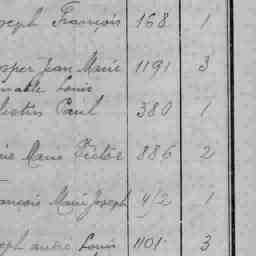 oseph François 168 1
osper Jean Marie 1191 3
mable Louis
lestin Paul 380 1
Marie Victor 886 2
ançois Marie Joseph 1
seph andré Louis 1101 3